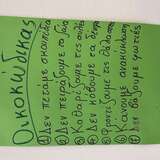 Οικοκώδικας
① Δεν πετάμε σκουπίδια
② Δεν πειράζουμε τα ζώα
③ Καθαρίζουμε τις
④ Δεν κόβουμε τα δέντρα
⑤ Φροντίζουμε τις θάλασσες
⑥ Κάνουμε ανακύκλωση
⑦ Δεν βάζουμε φωτιές